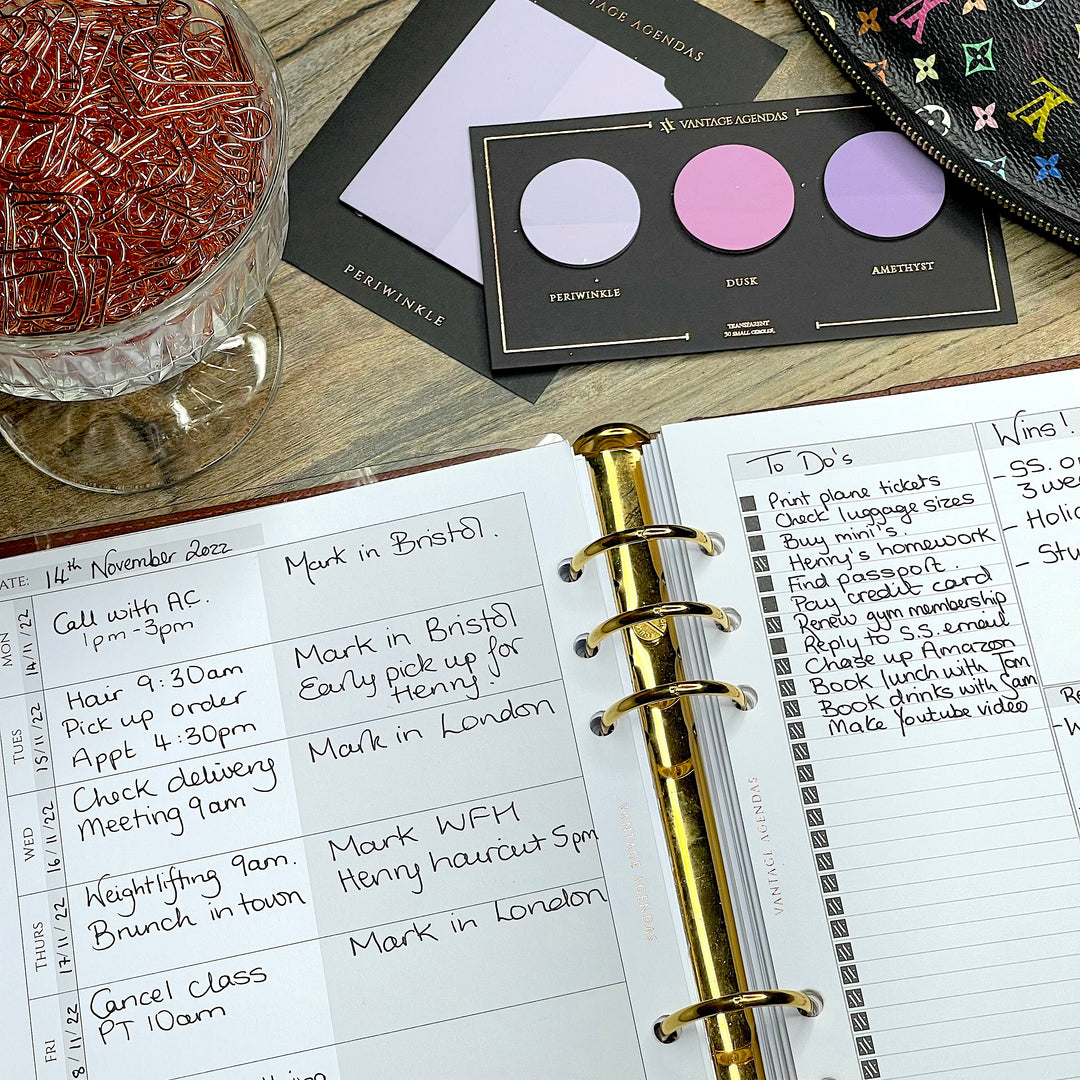 AGENDAS
PERIWINKLE
VANTAGE AGENDAS
PERIWINKLE
DUSK
AMETHYST
TRANSPARENT
ATE: 14th November 2022
MON
14/11/22
Call with AC.
1pm-3pm
Mark in Bristol.
TUES
15/11/22
Hair 9:30am
Pick up order
Appt 4:30pm
Mark in Bristol
Early pick up for
Henry.
WED
16/11/22
Check delivery
Meeting 9am
Mark in London
THURS
17/11/22
Weightlifting 9am.
Brunch in town
Mark WFH
Henry haircut 5pm
FRI
8/11/22
Cancel class
PT 10am
Mark in London
VANTAGE AGENDAS
To Do's
Print plane tickets
Check luggage sizes
Buy mini's.
Henry's homework
Find passport.
Pay credit card
Renew gym membership
Reply to S.S. email
Chase up Amazon
Book lunch with Tom
Book drinks with Sam
Make Youtube video
VANTAGE AGENDAS
Wins!
- SS. o
3 we
- Holi
- Stu
Re
- W